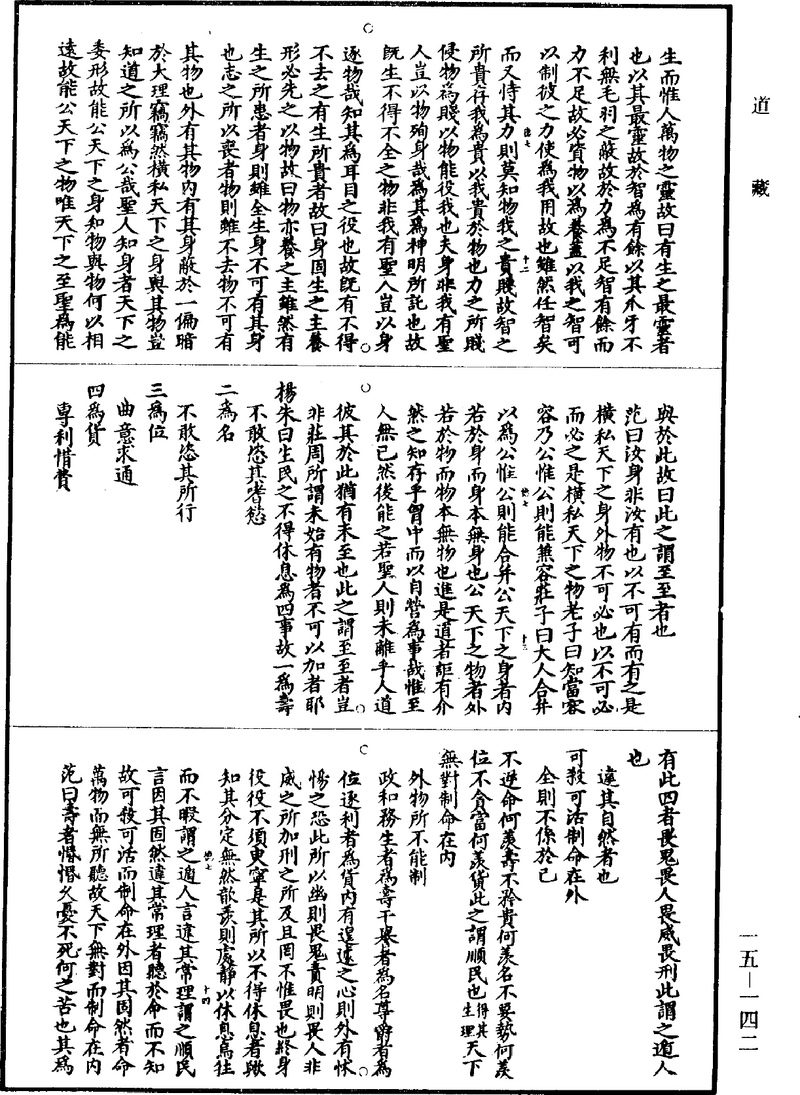 道藏
生而惟人萬物之靈故曰有生之最靈者
也以其最靈故於智為有餘以其爪牙不
利無毛羽之蔽故於力為不足智有餘而
力不足故必資物以為養蓋以我之智可
以制彼之力使為我用故也雖然任智矣
而又恃其力則莫知物我之貴賤故智之
所貴存我為貴以我貴於物也力之所賤
侵物為賤以物能役我也夫身非我有聖
人豈以物殉身哉為其為神明所託也故
既生不得不全之物非我有聖人豈以身
逐物哉知其為耳目之役也故既有不得
不去之有生所貴者故曰身固生之主養
形必先之以物故曰物亦養之主雖然有
生之所患者身則雖全生身不可有其身
也志之所以喪者物則雖不去物不可有
其物也外有其物內有其身蔽於一偏暗
於大理竊竊然橫私天下之身與其物豈
知道之所以為公哉聖人知身者天下之
委形故能公天下之身知物與物何以相
遠故能公天下之物唯天下之至聖為能
與於此故曰此之謂至至者也
范曰汝身非汝有也以不可有而有之是
橫私天下之身外物不可必也以不可必
而必之是橫私天下之物老子曰知常容
容乃公惟公則能兼容莊子曰大人合并
以為公惟公則能合并公天下之身者內
若於身而身本無身也公天下之物者外
若於物而物本無物也進是道者詎有介
然之知存乎胷中而以自營為事哉惟至
人無已然後能之若聖人則未離乎人道
彼其於此猶有未至也此之謂至至者豈
非莊周所謂未始有物者不可以加者耶
楊朱曰生民之不得休息為四事故一為壽
不敢恣其嗜慾
二為名
不敢恣其所行
三為位
曲意求通
四為貨
專利惜費
有此四者畏鬼畏人畏威畏刑此謂之遁人
也
違其自然者也
可殺可活制命在外
全則不係於己
不逆命何羨壽不矜貴何羨名不要勢何羨
位不貪富何羨貨此之謂順民也得其生理天下
無對制命在內
外物所不能制
政和務生者為壽干譽者為名尊爵者為
位逐利者為貨內有遑遽之心則外有怵
惕之恐此所以幽則畏鬼責明則畏人非
威之所加刑之所及且罔不惟畏也終身
役役不須臾寧是其所以不得休息者歟
知其分定無然歆羨則處靜以休息焉往
而不暇謂之遁人言違其常理謂之順民
言因其固然違其常理者聽於命而不知
故可殺可活而制命在外因其固然者命
萬物而無所聽故天下無對而制命在內
范曰壽者惛惛久憂不死何之苦也其為
一五—一四二